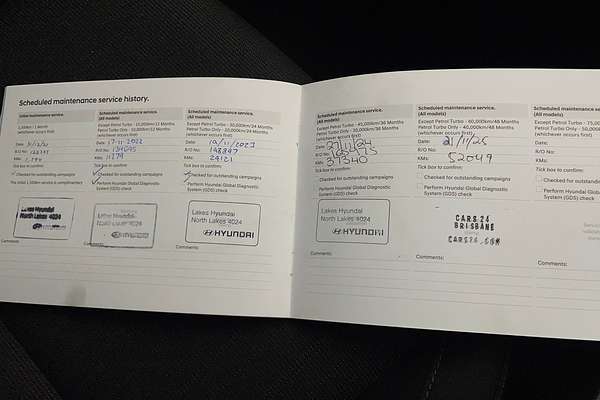 Scheduled maintenance service history.
Initial maintenance service
1,500km / 1 Month
(whichever occurs first)
Date:
R/O No:
KMs:
Tick box to confirm:
Checked for outstanding campaigns
This initial 1,500km service is complimentary
Lakes Hyundai
North Lakes 4024
Comments:
Scheduled maintenance service.
(All models)
Except Petrol Turbo - 15,000km/12 Months
Petrol Turbo Only - 10,000km/12 Months
(whichever occurs first)
Date: 17-11-2022
R/O No:
KMs: 11279
Tick box to confirm:
Checked for outstanding campaigns
Perform Hyundai Global Diagnostic
System (GDS) check
Lakes Hyundai
North Lakes 4024
Comments:
Scheduled maintenance service.
(All models)
Except Petrol Turbo - 30,000km/24 Months
Petrol Turbo Only - 20,000km/24 Months
(whichever occurs first)
Date: 10/11/2023
R/O No: 148847
KMs: 24121
Tick box to confirm:
Checked for outstanding campaigns
Perform Hyundai Global Diagnostic
System (GDS) check
Lakes Hyundai
North Lakes 4024
HYUNDAI
Comments:
Scheduled maintenance service.
(All models)
Except Petrol Turbo - 45,000km/36 Months
Petrol Turbo Only - 30,000km/36 Months
(whichever occurs first)
Date: 27/11/24
R/O No:
KMs: 37340
Tick box to confirm:
Checked for outstanding campaigns
Perform Hyundai Global Diagnostic
System (GDS) check
Lakes Hyundai
North Lakes 4024
HYUNDAI
Comments:
Scheduled maintenance service.
(All models)
Except Petrol Turbo - 60,000km/48 Months
Petrol Turbo Only - 40,000km/48 Months
(whichever occurs first)
Date: 21/11/25
R/O No:
KMs: 52049
Tick box to confirm:
Checked for outstanding campaigns
Perform Hyundai Global Diagnostic
System (GDS) check
CARS24
BRISBANE
CARS24.COM
Comments:
Scheduled maintenance
(All models)
Except Petrol Turbo - 75,0
Petrol Turbo Only - 50,00
(whichever occurs first)
Date:
R/O No:
KMs:
Tick box to confirm:
Checked for outstanding
Perform Hyundai Global
System (GDS) check
Comments: